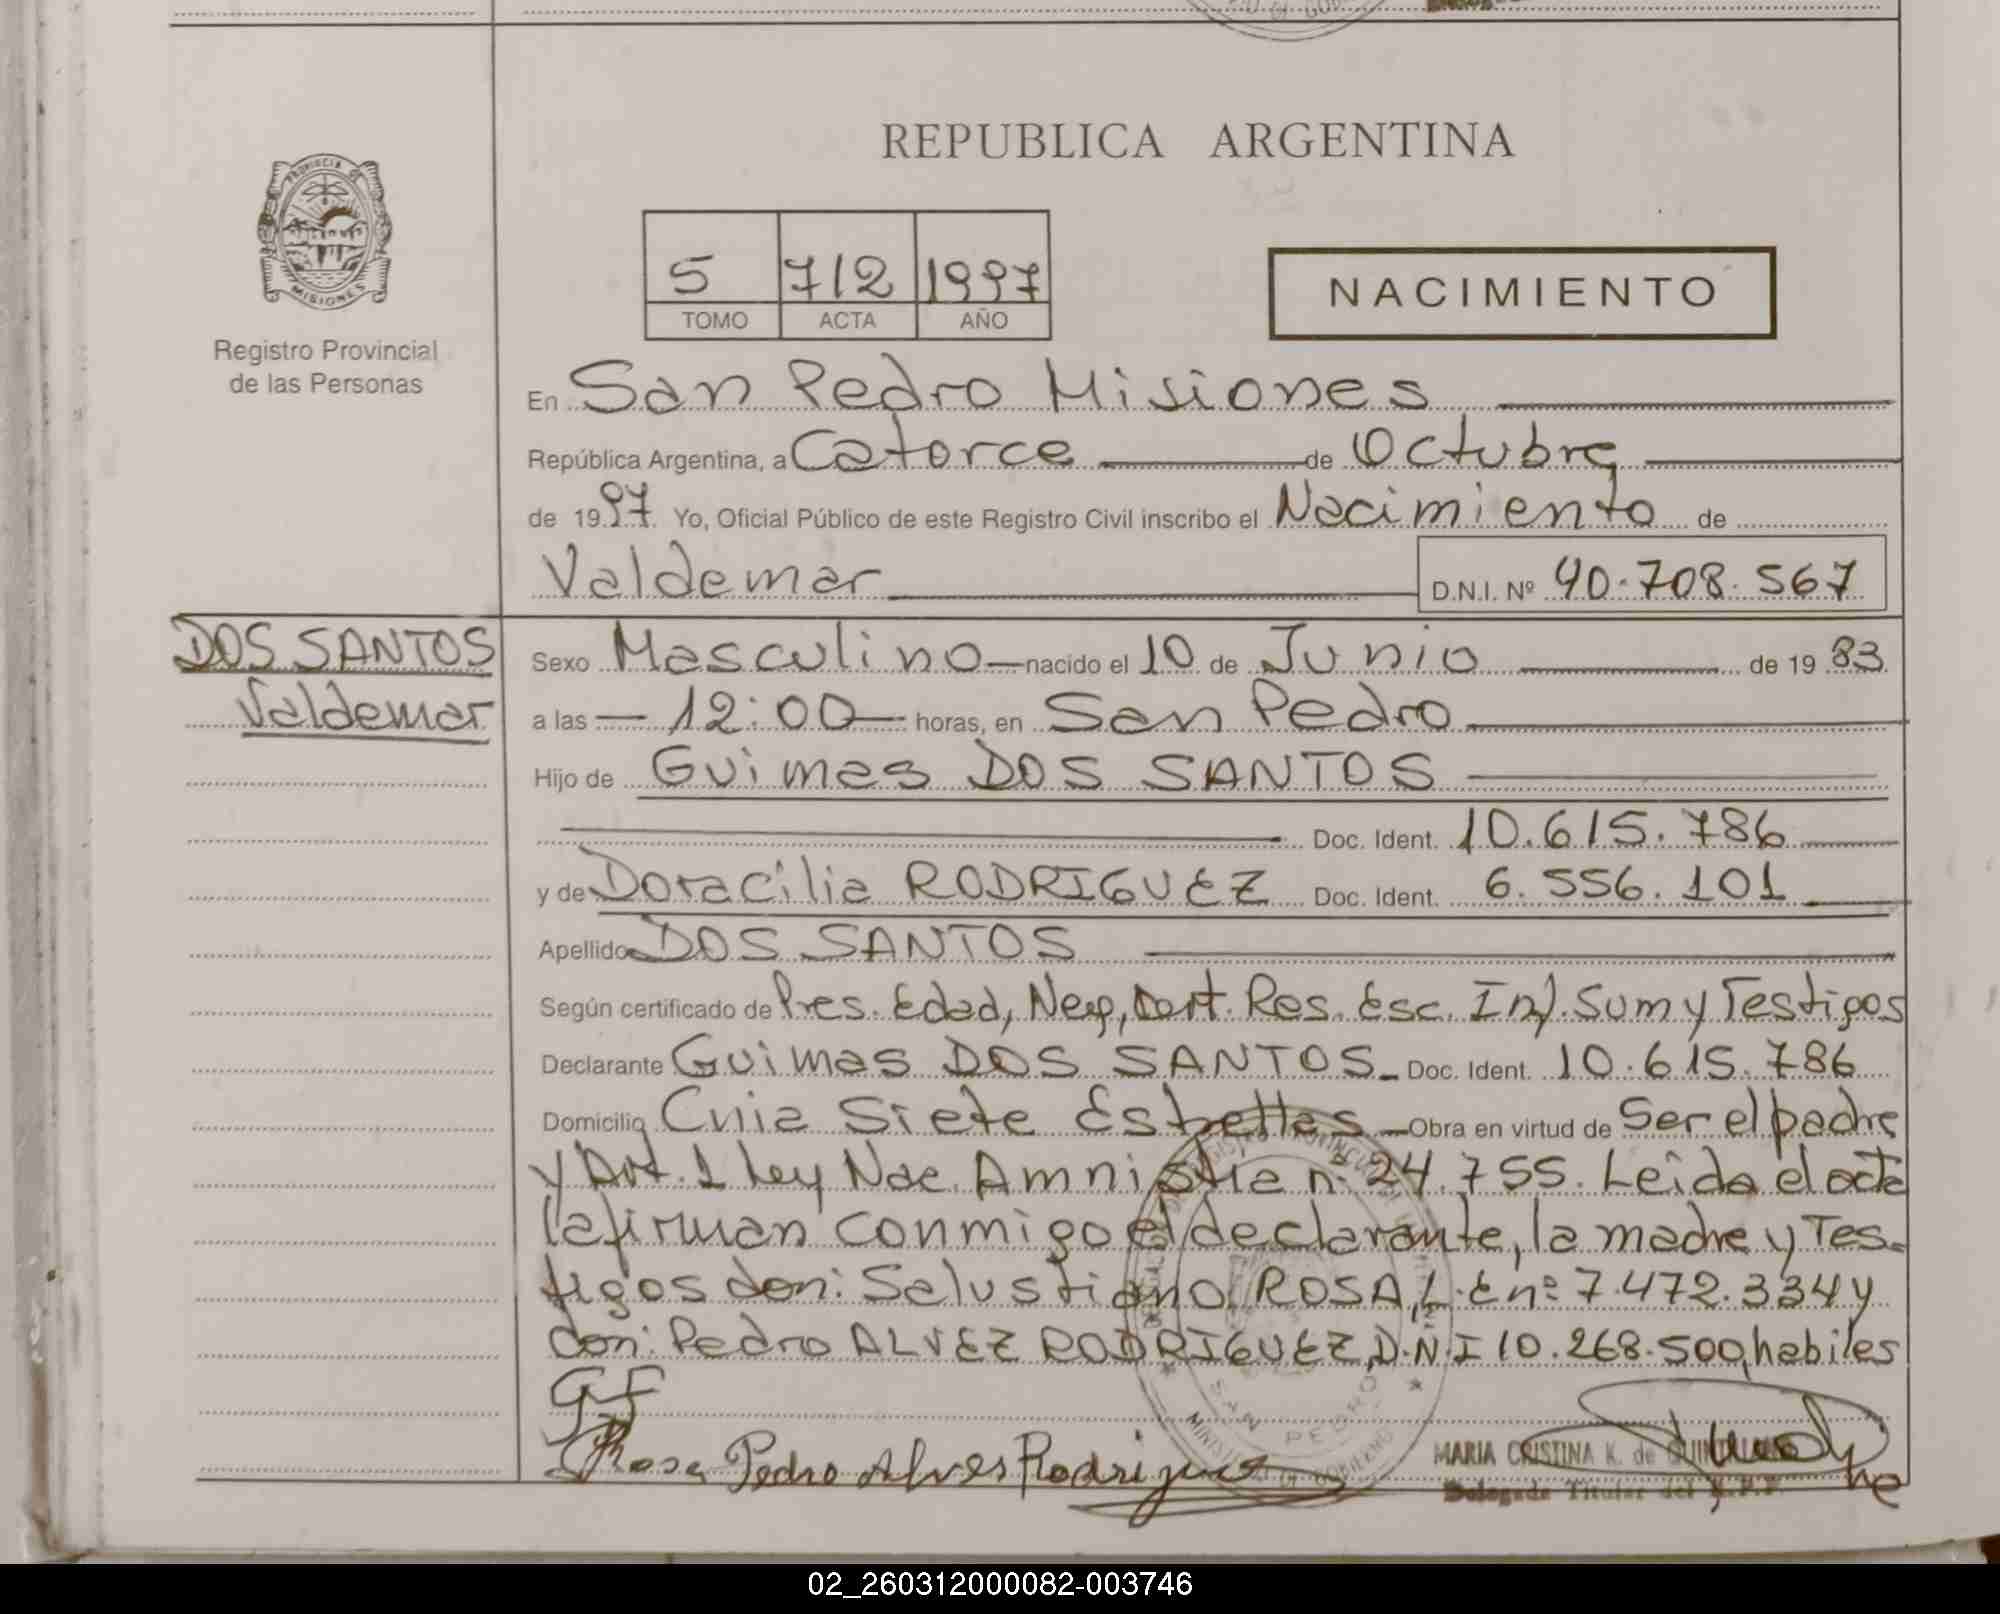 REPUBLICA ARGENTINA
PROVINCIA DE
MISIONES
Registro Provincial
de las Personas
5 712 1997
TOMO ACTA AÑO
NACIMIENTO
En San Pedro Misiones
República Argentina, a Catorce de Octubre
de 1997. Yo, Oficial Público de este Registro Civil inscribo el Nacimiento de
Valdemar D.N.I. Nº 40.708.567
DOS SANTOS
Valdemar
Sexo Masculino nacido el 10 de Junio de 19 83
a las 12:00 horas, en San Pedro
Hijo de Guimas DOS SANTOS
Doc. Ident. 10.615.786
y de Doracilia RODRIGUEZ Doc. Ident. 6.556.101
Apellido DOS SANTOS
Según certificado de Pres. Edad, Neg, Cert. Res. Esc. Inf. Sum y Testigos
Declarante Guimas DOS SANTOS Doc. Ident. 10.615.786
Domicilio Cnia Siete Estrellas Obra en virtud de Ser el padre
y Art. 1 Ley Nac. Amnistia nº 24.755. Leida el acta
la firman conmigo el declarante, la madre y Tes-
tigos don: Salustiano ROSA, L.E nº 7.472.334 y
don: Pedro ALVEZ RODRIGUEZ, D.N.I 10.268.500, habiles
SAN PEDRO
Rosa Pedro Alves Rodriguez
MARIA CRISTINA K. de
Delegada Titular del R.P.P.
02_260312000082-003746